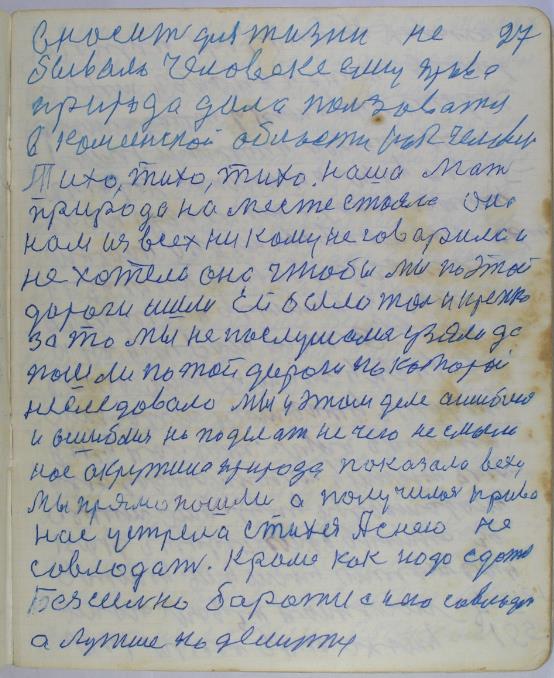 вносит для жизни не 27
бывало человеке ему права
природа дала ползоватя
в области
Тихо, тихо, тихо. наша мать
природа на месте стояла она
нам из всех никому не говарила и
не хотела она чтобы мы по этой
дороги шли ей было и крепко
за то мы не послушалися взяли да
пошли по той дороги по которой
неследовало мы у этом деле ошиблися
и ошиблися но поделат не чего не смогли
нас окружила природа показала веху
мы прямо пошли а получилося криво
нас устрела стихея А с нею не
совлодат. Кроме как надо сдатся
Безсилно баротис с нею совлодат
а лутше